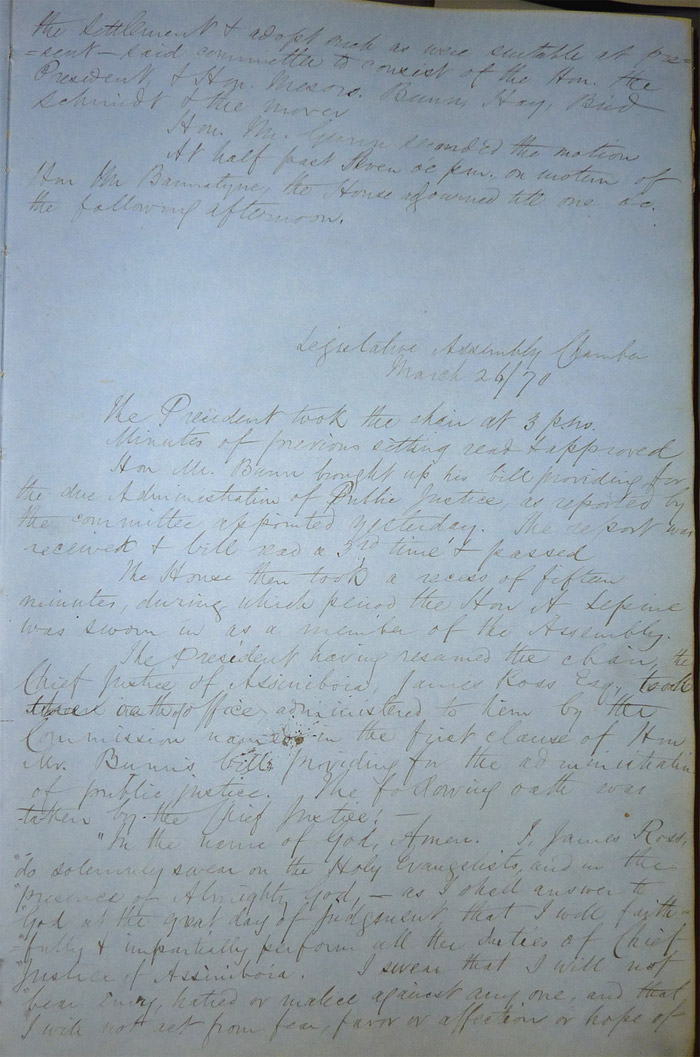 the settlement & adopt such as were suitable at pre=
=sent - said committee to consist of the Hon. the
President, & Hon. Messrs. Bunn, Hay, Bird
Schmidt & the mover
Hon. Mr. Gunn seconded the motion
At half past Seven oc p.m. on motion of
Hon Mr Bannatyne, the House adjourned till one oc.
the following afternoon.
Legislative Assembly Chamber
March 26/70
The President took the chair at 3 p.m.
Minutes of previous sitting read & approved
Hon Mr. Bunn brought up his bill providing for
the due Administration of Public Justice, as reported by
the committee appointed yesterday. The report was
received & bill read a 3rd time & passed
The House then took a recess of fifteen
minutes, during which period the Hon A Lepine
was sworn in as a member of the Assembly.
The President having resumed the chair, the
Chief Justice of Assiniboia, James Ross Esq, took
oath of office, administered to him by the
Commission named in the first clause of Hon.
Mr. Bunn's bill providing for the administration
of public justice. The following oath was
taken by the Chief Justice: -
"In the name of God, Amen. I, James Ross,
"do solemnly swear on the Holy Evangelists, and in the
"presence of Almighty God, - as I shall answer to
God at the great day of Judgment, that I will faith=
"fully & impartially perform all the duties of Chief
"Justice of Assiniboia. I swear that I will not
"bear Envy, hatred or malice against any one, and that
"I will not act from fear, favor or affection or hope of